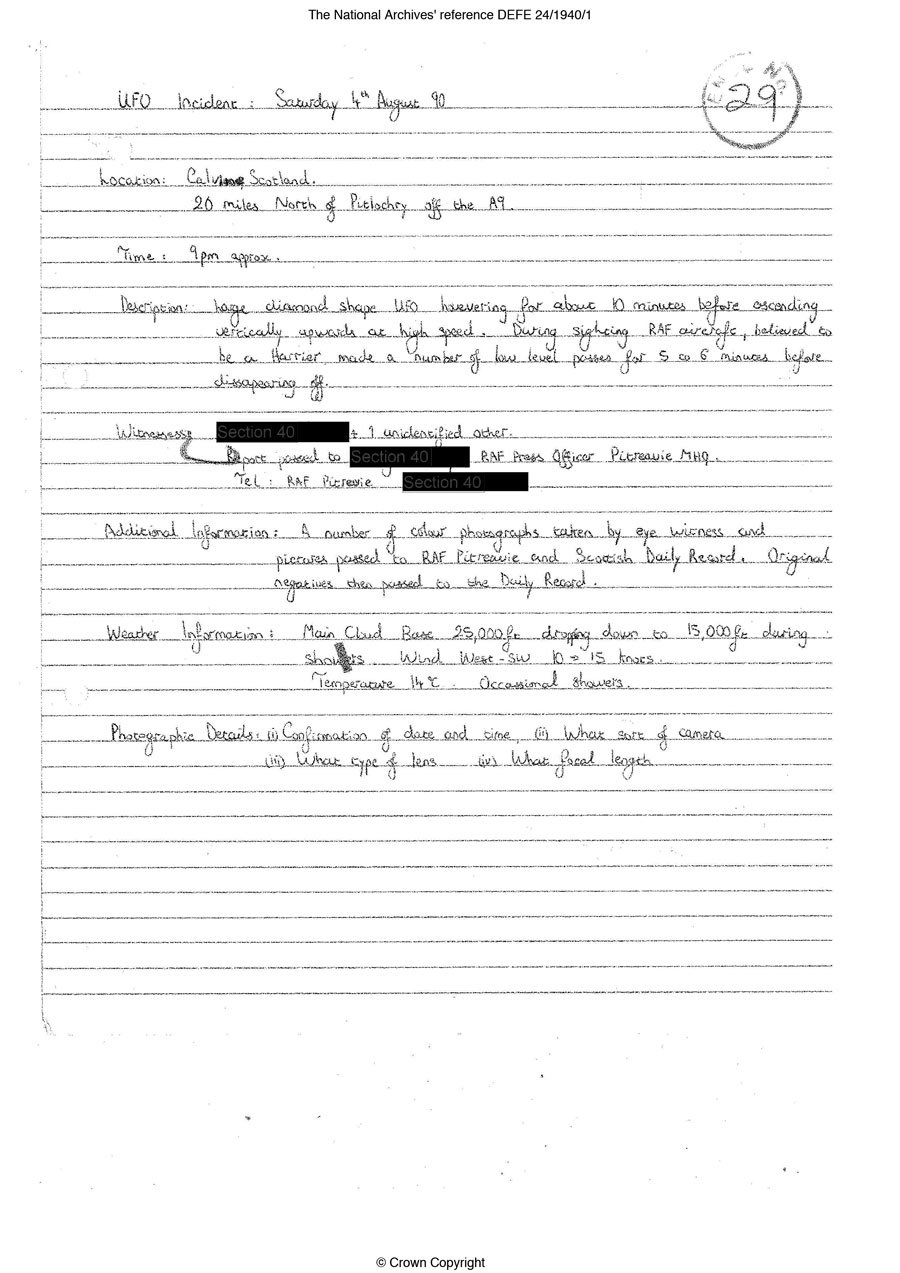 The National Archives' reference DEFE 24/1940/1
ENCL No.
29
UFO Incident : Saturday 4th August 90
Location: Calvine, Scotland.
20 miles North of Pitlochry off the A9.
Time : 9pm approx.
Description: Large diamond shape UFO hovvering for about 10 minutes before ascending
vertically upwards at high speed. During sighting RAF aircraft, believed to
be a Harrier made a number of low level passes for 5 to 6 minutes before
dissapearing off.
Witnesses: Section 40 + 1 unidentified other.
Report passed to Section 40 RAF Press Officer Pitreavie MHQ.
Tel : RAF Pitreavie Section 40
Additional Information : A number of colour photographs taken by eye witness and
pictures passed to RAF Pitreavie and Scottish Daily Record. Original
negatives then passed to the Daily Record.
Weather Information : Main Cloud Base 25,000ft dropping down to 15,000ft during
showers Wind West-SW 10 → 15 knots.
Temperature 14°C. Occassional showers.
Photographic Details: (i) Confirmation of date and time, (ii) What sort of camera
(iii) What type of lens (iv) What focal length
© Crown Copyright